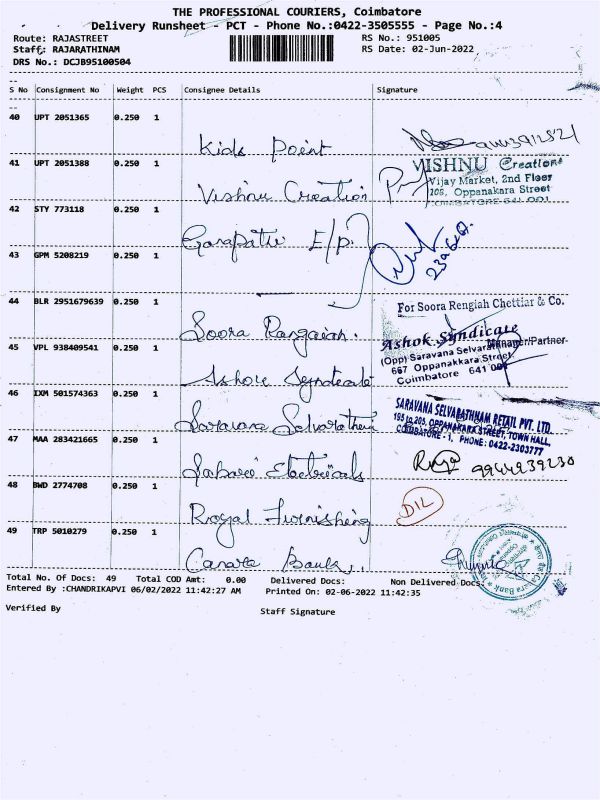 THE PROFESSIONAL COURIERS, Coimbatore
Delivery Runsheet - PCT - Phone No.:0422-3505555 - Page No.:4
Route: RAJASTREET
RS No.: 951005
Staff: RAJARATHINAM
RS Date: 02-Jun-2022
DRS No.: DCJB95100504
S No Consignment No Weight PCS Consignee Details Signature
40 UPT 2051365 0.250 1
Kids Point
41 UPT 2051388 0.250 1
VISHNU Creations
Vijay Market, 2nd Floor
106, Oppanakara Street
COIMBATORE-641 001
Vishnu Creation
42 STY 773118 0.250 1
Ganapathi E/P
43 GPM 5208219 0.250 1
44 BLR 2951679639 0.250 1
For Soora Rengiah Chettiar & Co.
Soora Rangaiah.
Manager/Partner
45 VPL 938409541 0.250 1
Ashok Syndicate
(Opp) Saravana Selvarathinam
667 Oppanakkara Street,
Coimbatore 641 001
Ashok Syndicate
46 IXM 501574363 0.250 1
SARAVANA SELVARATHNAM RETAIL PVT. LTD.
195 to 205, OPPANAKARA STREET, TOWN HALL,
COIMBATORE - 1, PHONE: 0422-2303777
Saravana Selvarathnam
47 MAA 283421665 0.250 1
Raja 9944939230
Sabari Electricals
48 BWD 2774708 0.250 1
D1L
Royal Furnishing
49 TRP 5010279 0.250 1
Canara Bank
Total No. Of Docs: 49 Total COD Amt: 0.00 Delivered Docs: Non Delivered Docs:
Entered By :CHANDRIKAPVI 06/02/2022 11:42:27 AM Printed On: 02-06-2022 11:42:35
Verified By
Staff Signature